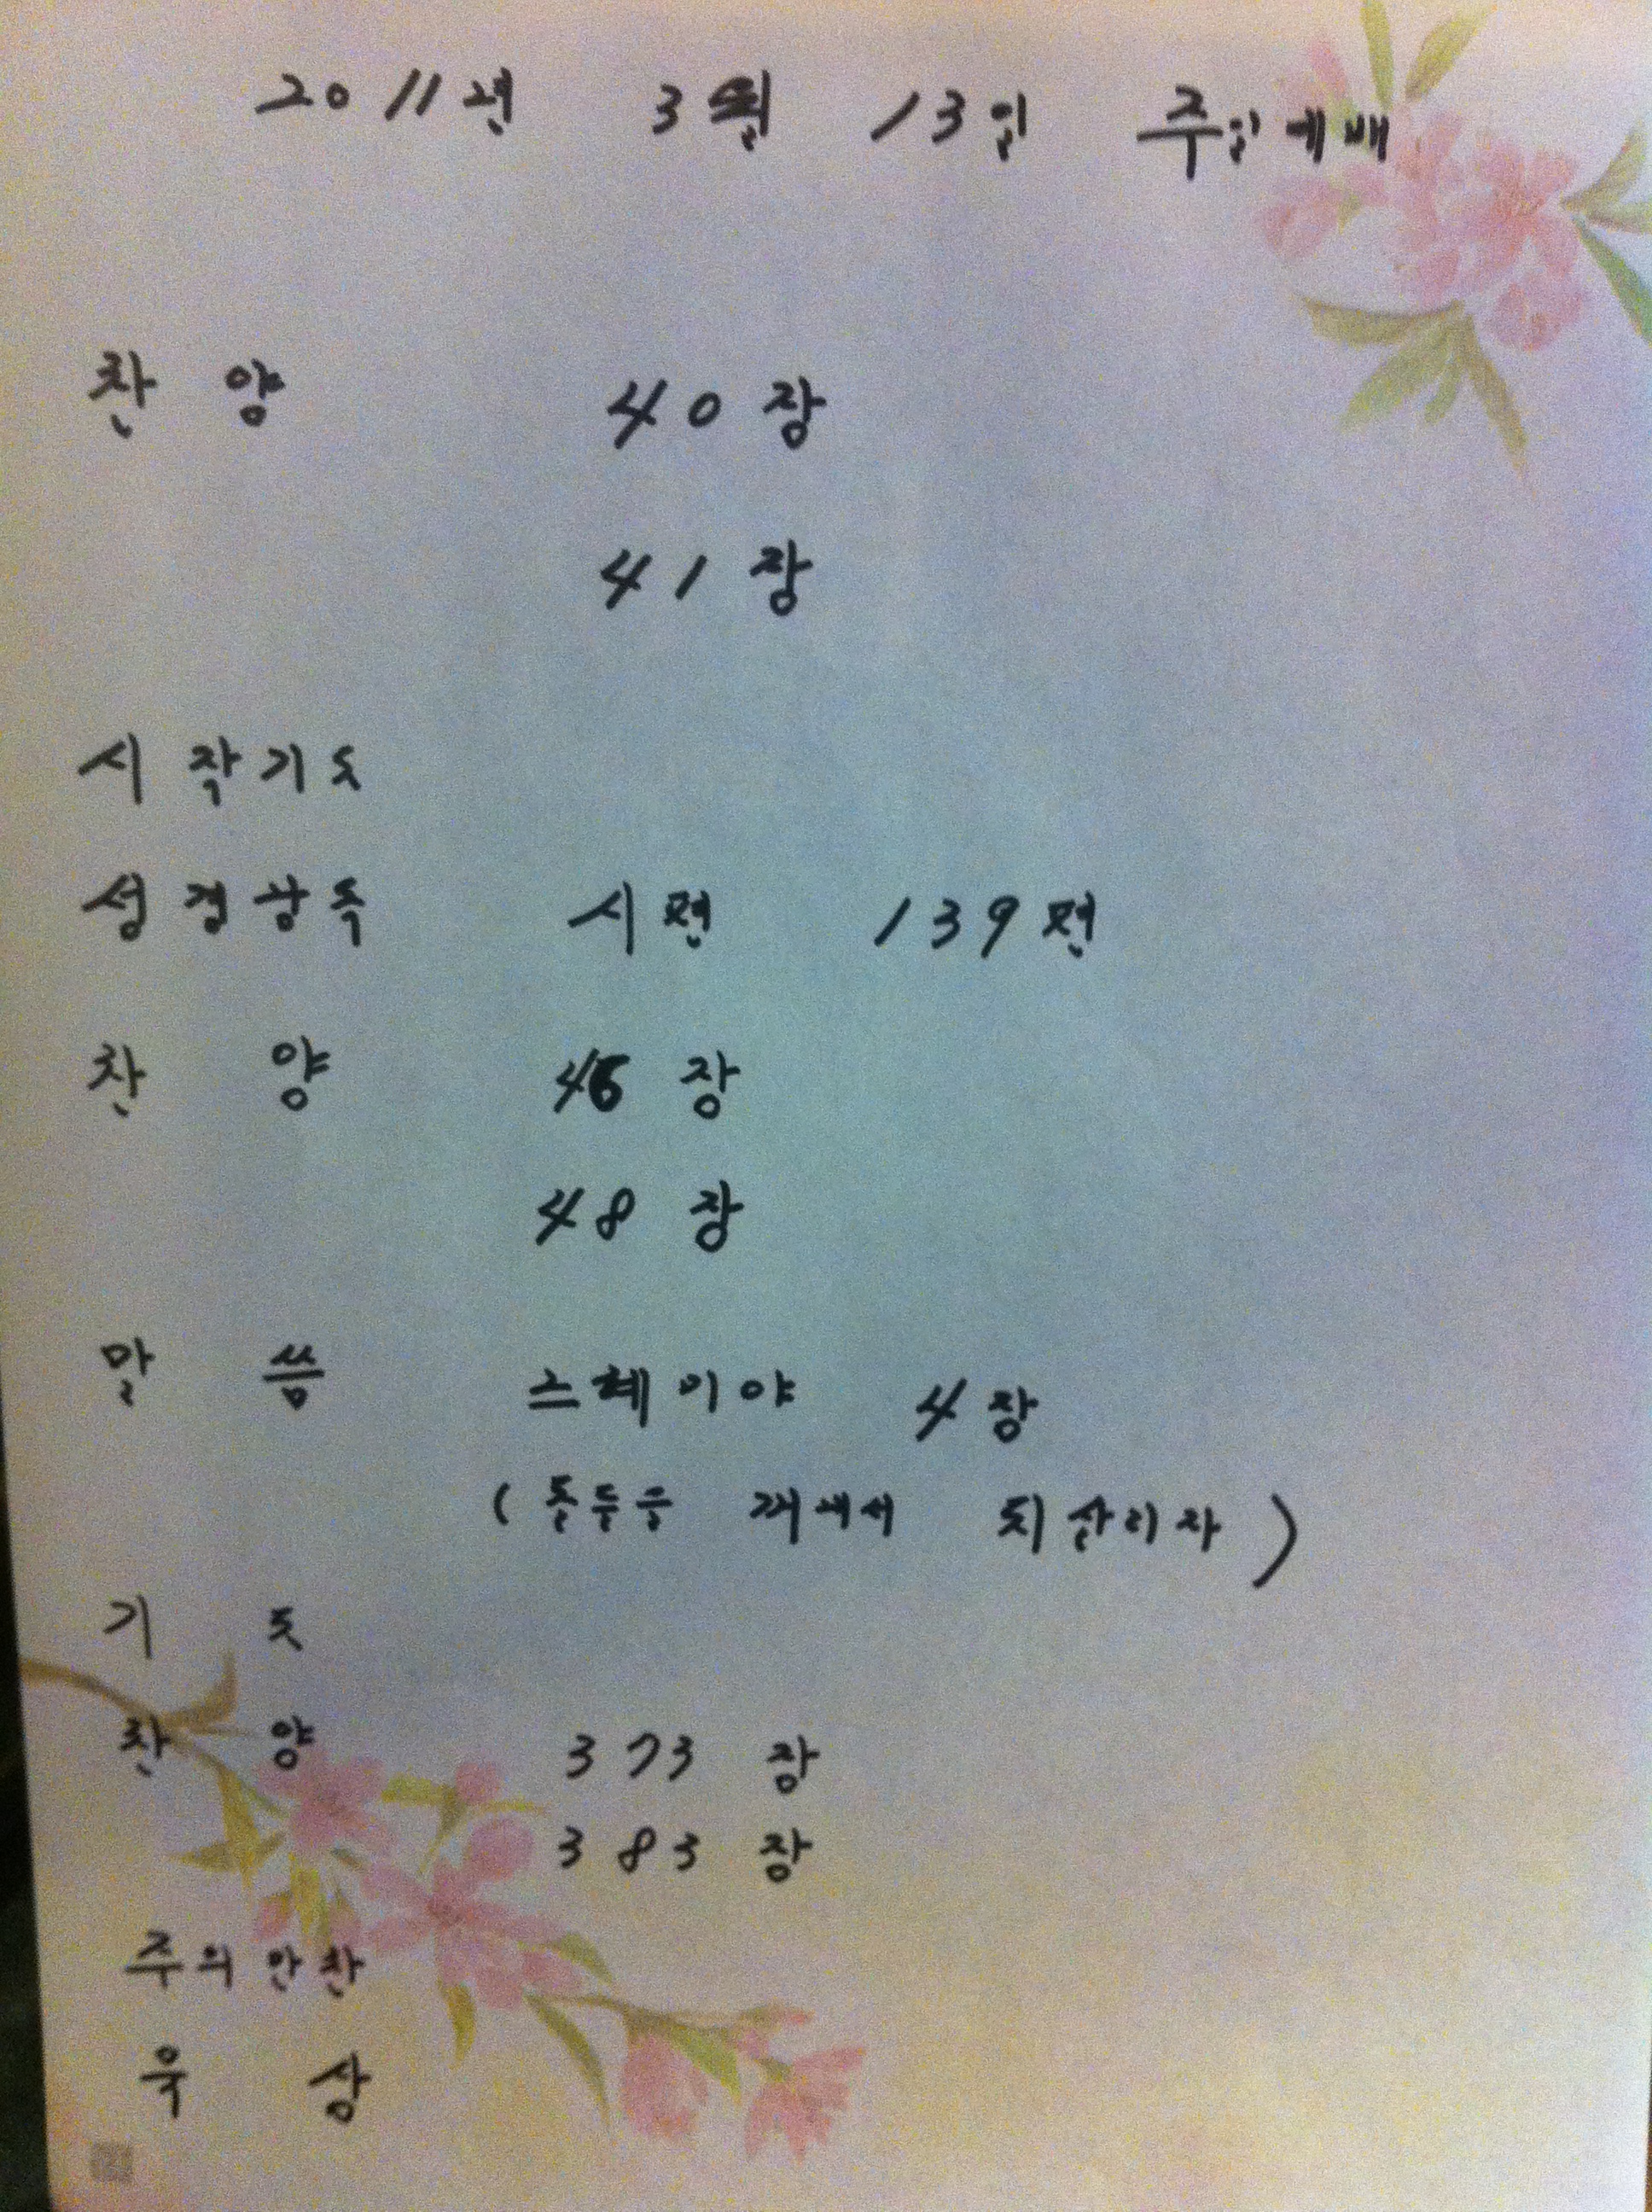 2011년 3월 13일 주일예배
찬양 40장
41장
시작기도
성경상독 시편 139편
찬양 46장
48장
말씀 느헤미야 4장
(돌들을 깨내서 되살리자)
기도
찬양 373장
383장
주의만찬
묵상